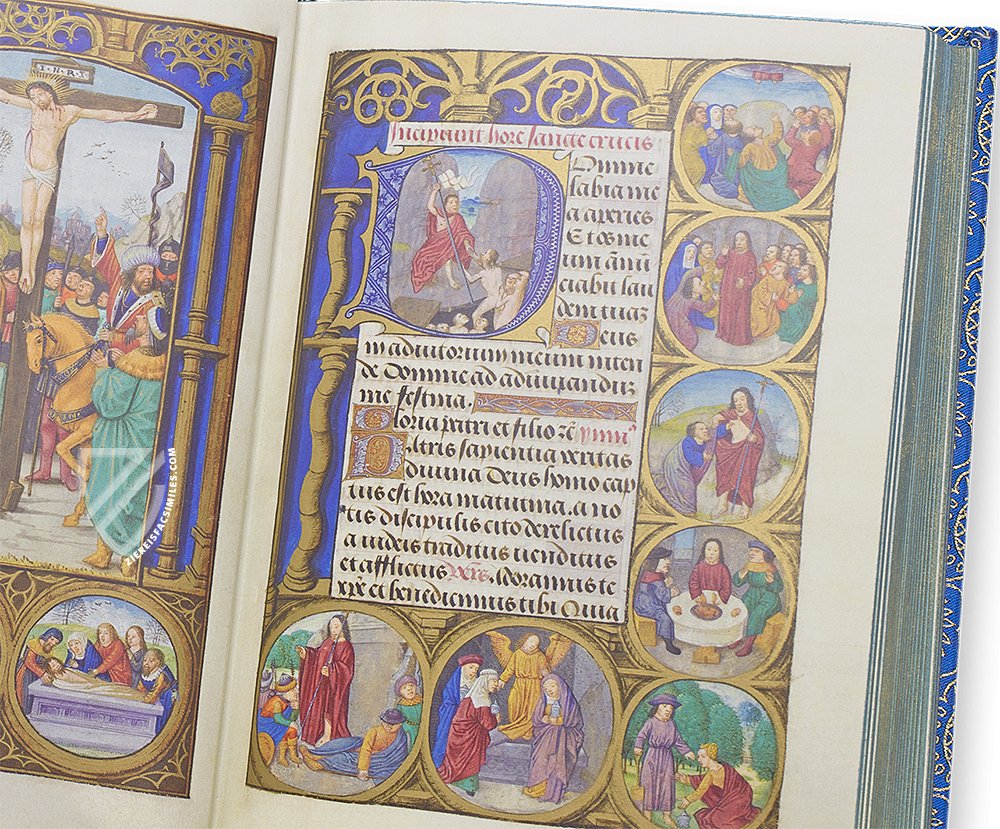 I·N·R·I
Incipiunt hore sancte crucis
Domine
labia me
a aperies
Et os me
um an̄ūi
ciabit lau
dem tuaz
Deus
in adiutorium meum inten
de Domine ad adiuuanduz
me festina.
Gloria patri et filio zc̄ ymn⁹
Patris sapientia veritas
diuina Deus homo cap
tus est hora matutina. a no
tis discipulis cito derelictus
a iudeis traditus uenditus
et afflictus vers̄. Adoramus te
xp̄e et benedicimus tibi Quia
ZIEREISFACSIMILES.COM